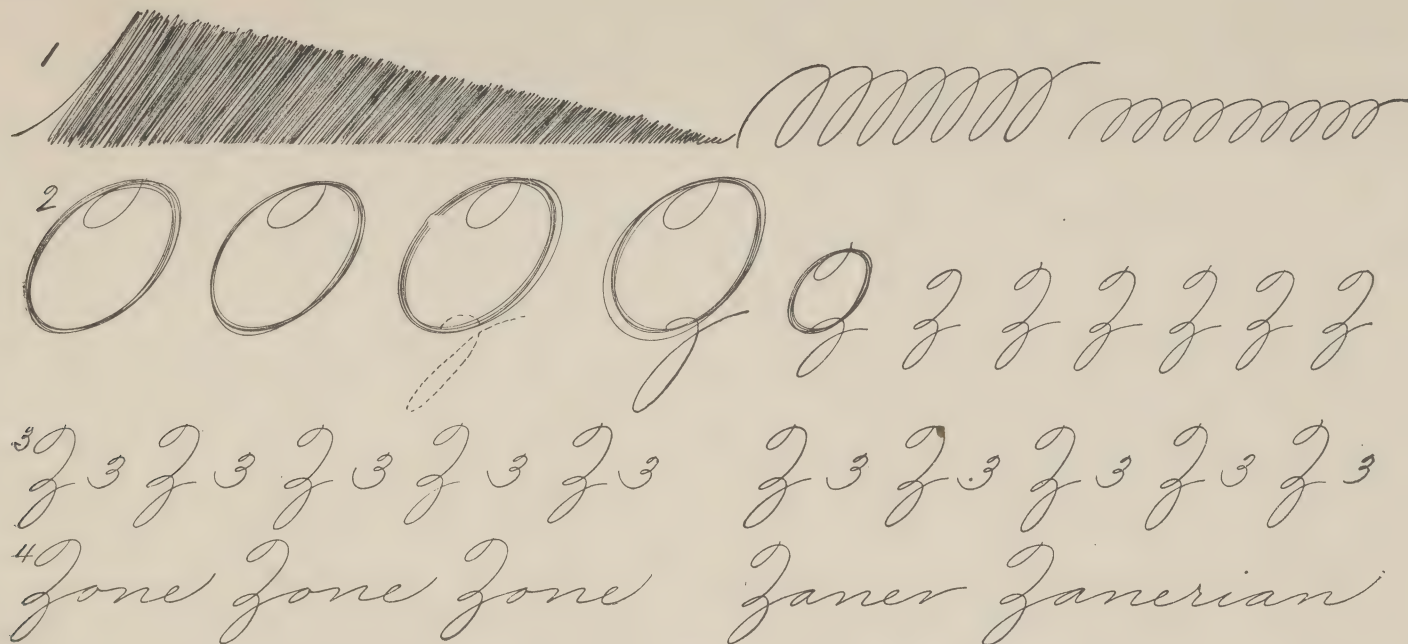 1
2 Z Z Z Z Z Z Z Z
3 Z 3 Z 3 Z 3 Z 3 Z 3 Z 3 Z 3 Z 3 Z 3 Z 3
4 Zone Zone Zone Zaner Zanerian